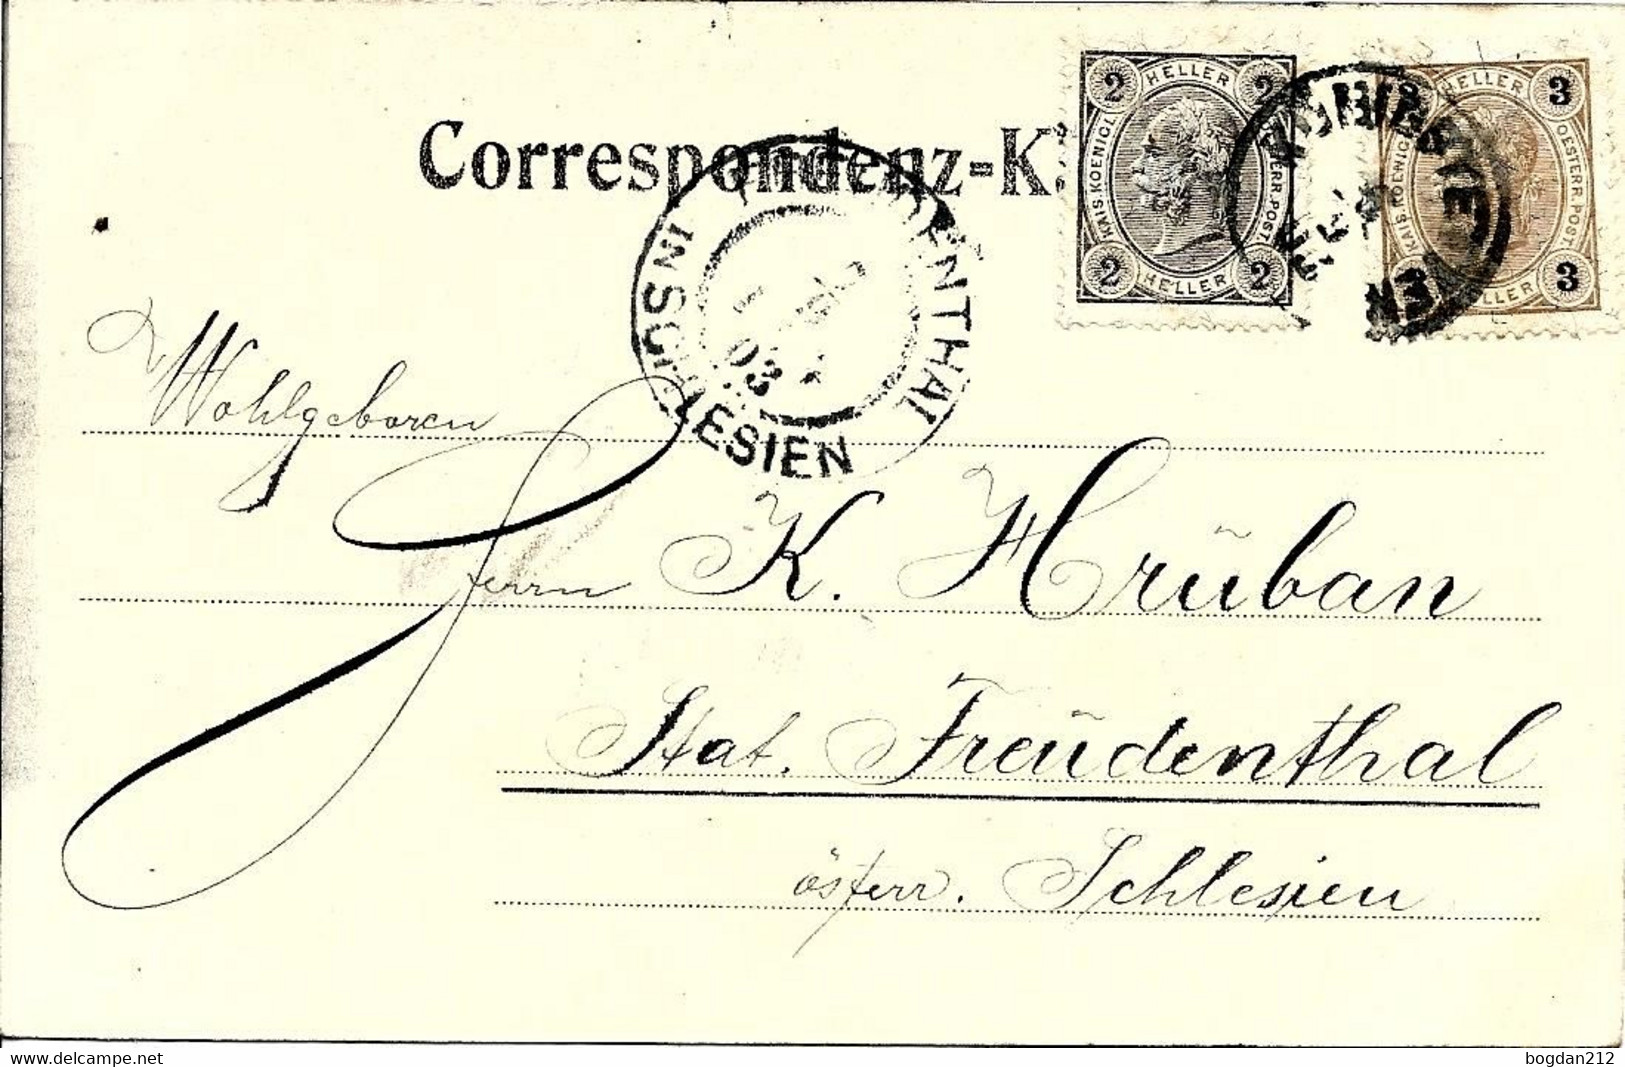 Correspondenz=K
2 HELLER 2
KAIS. KOENIGL. OESTERR. POST
2 HELLER 2
HELLER 3
KAIS. KOENIGL. OESTERR. POST.
3 HELLER 3
FREUDENTHAL
IN SCHLESIEN
03
Wohlgeboren
Herrn K. Hrūban
Stat. Freūdenthal
österr. Schlesien
www.delcampe.net
bogdan212